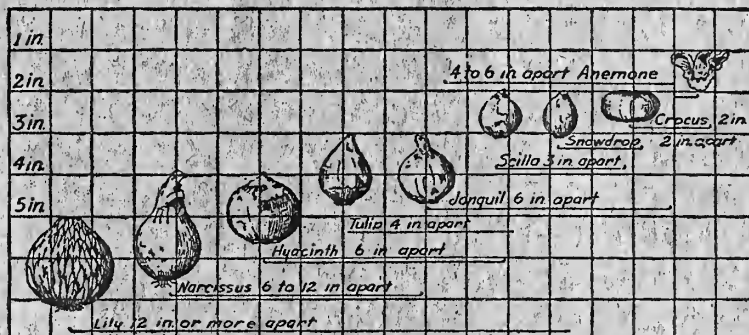 1 in.
2 in.
3 in.
4 in.
5 in.
4 to 6 in apart Anemone
Crocus, 2 in
Snowdrop, 2 in apart
Scilla 3 in apart,
Jonquil 6 in apart
Tulip 4 in apart
Hyacinth 6 in apart
Narcissus 6 to 12 in apart
Lily 12 in or more apart